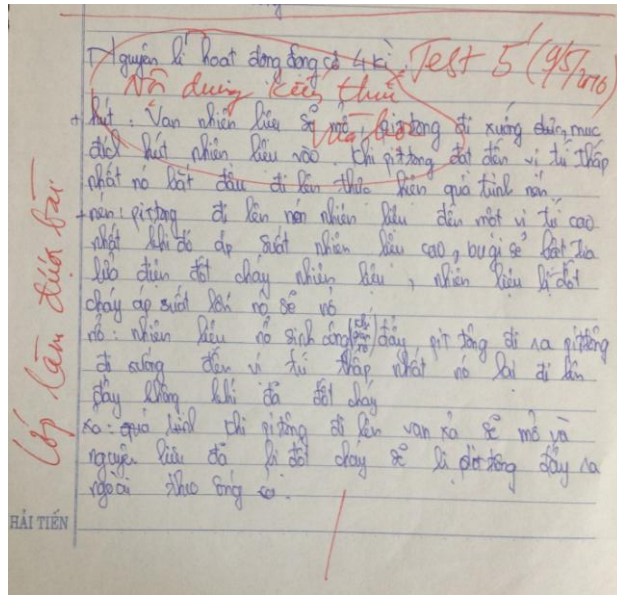 Nguyên lí hoạt động động cơ 4 kì. Test 5' (9/5/2016)
Nội dung kiến thức
vừa học
+ hút: Van nhiên liệu sẽ mở, pittong đi xuống mục
đích hút nhiên liệu vào. Khi pittong đạt đến vị trí thấp
nhất nó bắt đầu đi lên thực hiện quá trình nén
+ nén: pittong đi lên nén nhiên liệu đến một vị trí cao
nhất khi đó áp suất nhiên liệu cao, bugi sẽ bật tia
lửa điện đốt cháy nhiên liệu, nhiên liệu bị đốt
cháy áp suất lớn nó sẽ nổ
nổ: nhiên liệu nổ sinh công đẩy, pit tông đi ra pittông
đi xuống đến vị trí thấp nhất nó lại đi lên
đẩy không khí đã đốt cháy
xả: quá trình khi pittông đi lên van xả sẽ mở và
nguyên liệu đã bị đốt cháy sẽ bị pittong đẩy ra
ngoài theo ống xả.
Lớp làm dưới bài
HẢI TIẾN